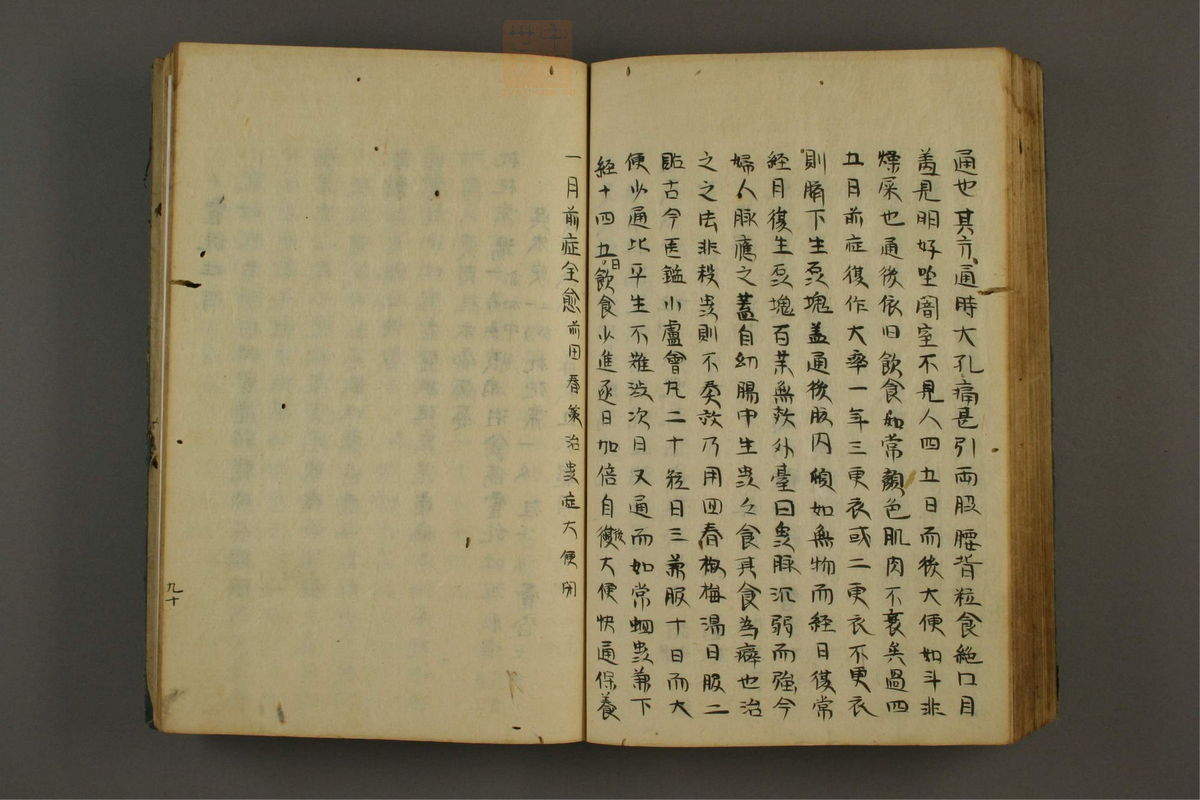 通也其亦通時大孔痛甚引両股腰背粒食絶口目
羞見明好坐闇室不見人四五日而後大便如斗非
燥屎也通後依旧飲食如常顔色肌肉不衰矣過四
五月前症復作大率一年三更衣或二更衣不更衣
則臍下生癥塊蓋通後腹内頓如無物而経日復常
経月復生癥塊百薬無効外臺曰虫脉沉弱而強今
婦人脉應之蓋自幼腸中生虫之食其食為癖也治
之之法非殺虫則不奏効乃用回春椒梅湯日服二
貼古今医鑑小盧會丸二十粒日三兼服十日而大
便少通比平生不難渋次日又通而如常蛔虫兼下
経十四五日飲食少進逐日加倍自後大便快通保養
一月前症全愈前田春策治虫症大便閉
九十